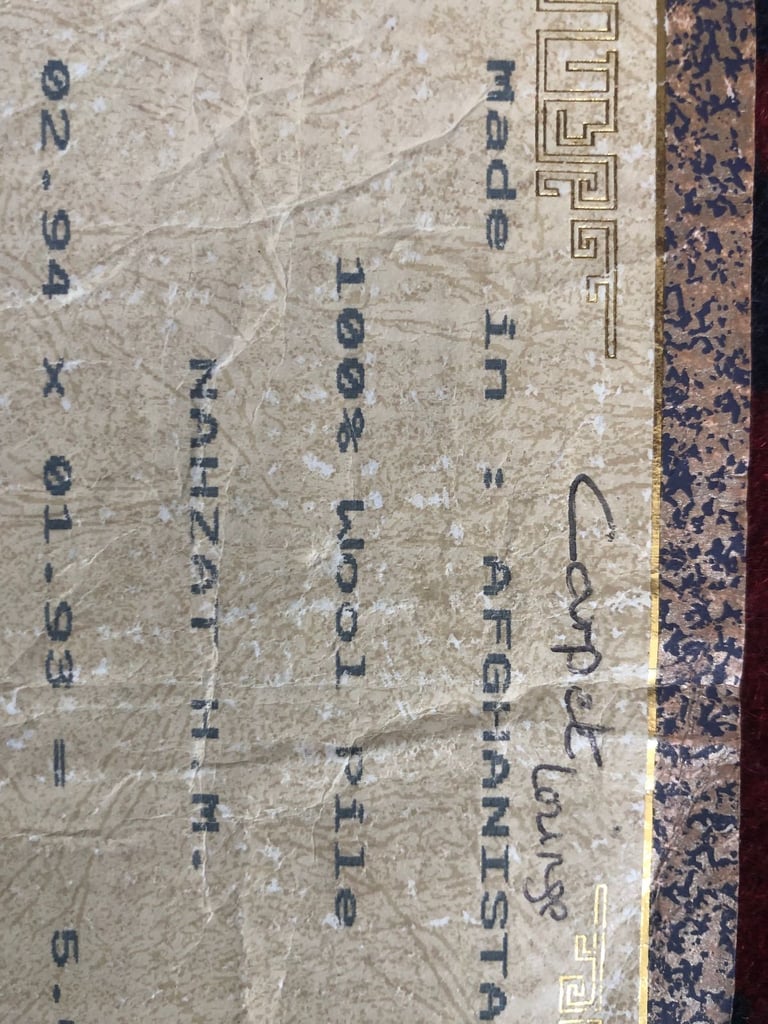 Carpet lounge
Made in : AFGHANISTA
100% Wool pile
NAHZAT H.M.
02.94 x 01.93 = 5.